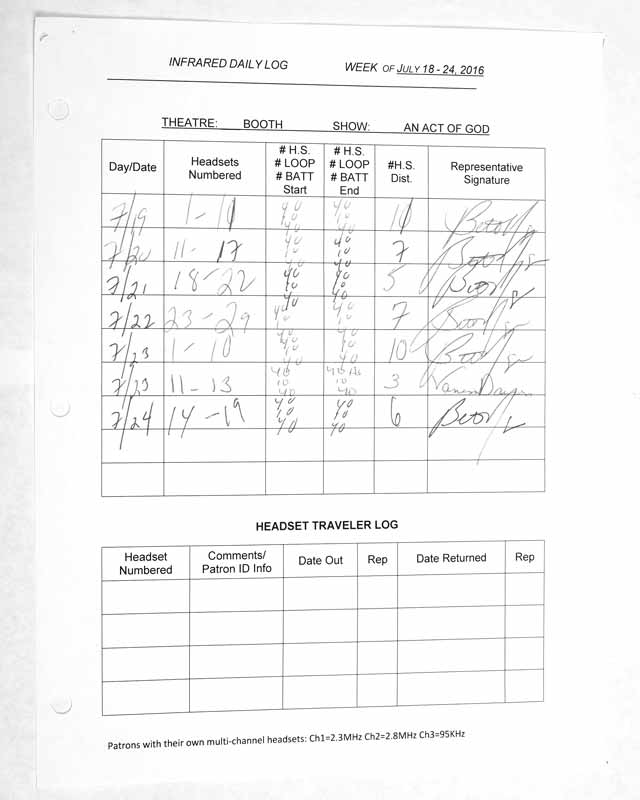 INFRARED DAILY LOG WEEK OF JULY 18 - 24, 2016
THEATRE: BOOTH SHOW: AN ACT OF GOD
Day/Date Headsets Numbered # H.S. # LOOP # BATT Start # H.S. # LOOP # BATT End #H.S. Dist. Representative Signature
7/19 1-11 40 10 40 40 10 40 11
7/20 11-17 40 10 40 40 10 40 7
7/21 18-22 40 10 40 40 10 40 5
7/22 23-29 40 10 40 40 10 40 7
7/23 1-10 40 10 40 40 10 40 10
7/23 11-13 40 10 40 40 10 40 3
7/24 14-19 40 10 40 40 10 40 6
HEADSET TRAVELER LOG
Headset Numbered Comments/ Patron ID Info Date Out Rep Date Returned Rep
Patrons with their own multi-channel headsets: Ch1=2.3MHz Ch2=2.8MHz Ch3=95KHz